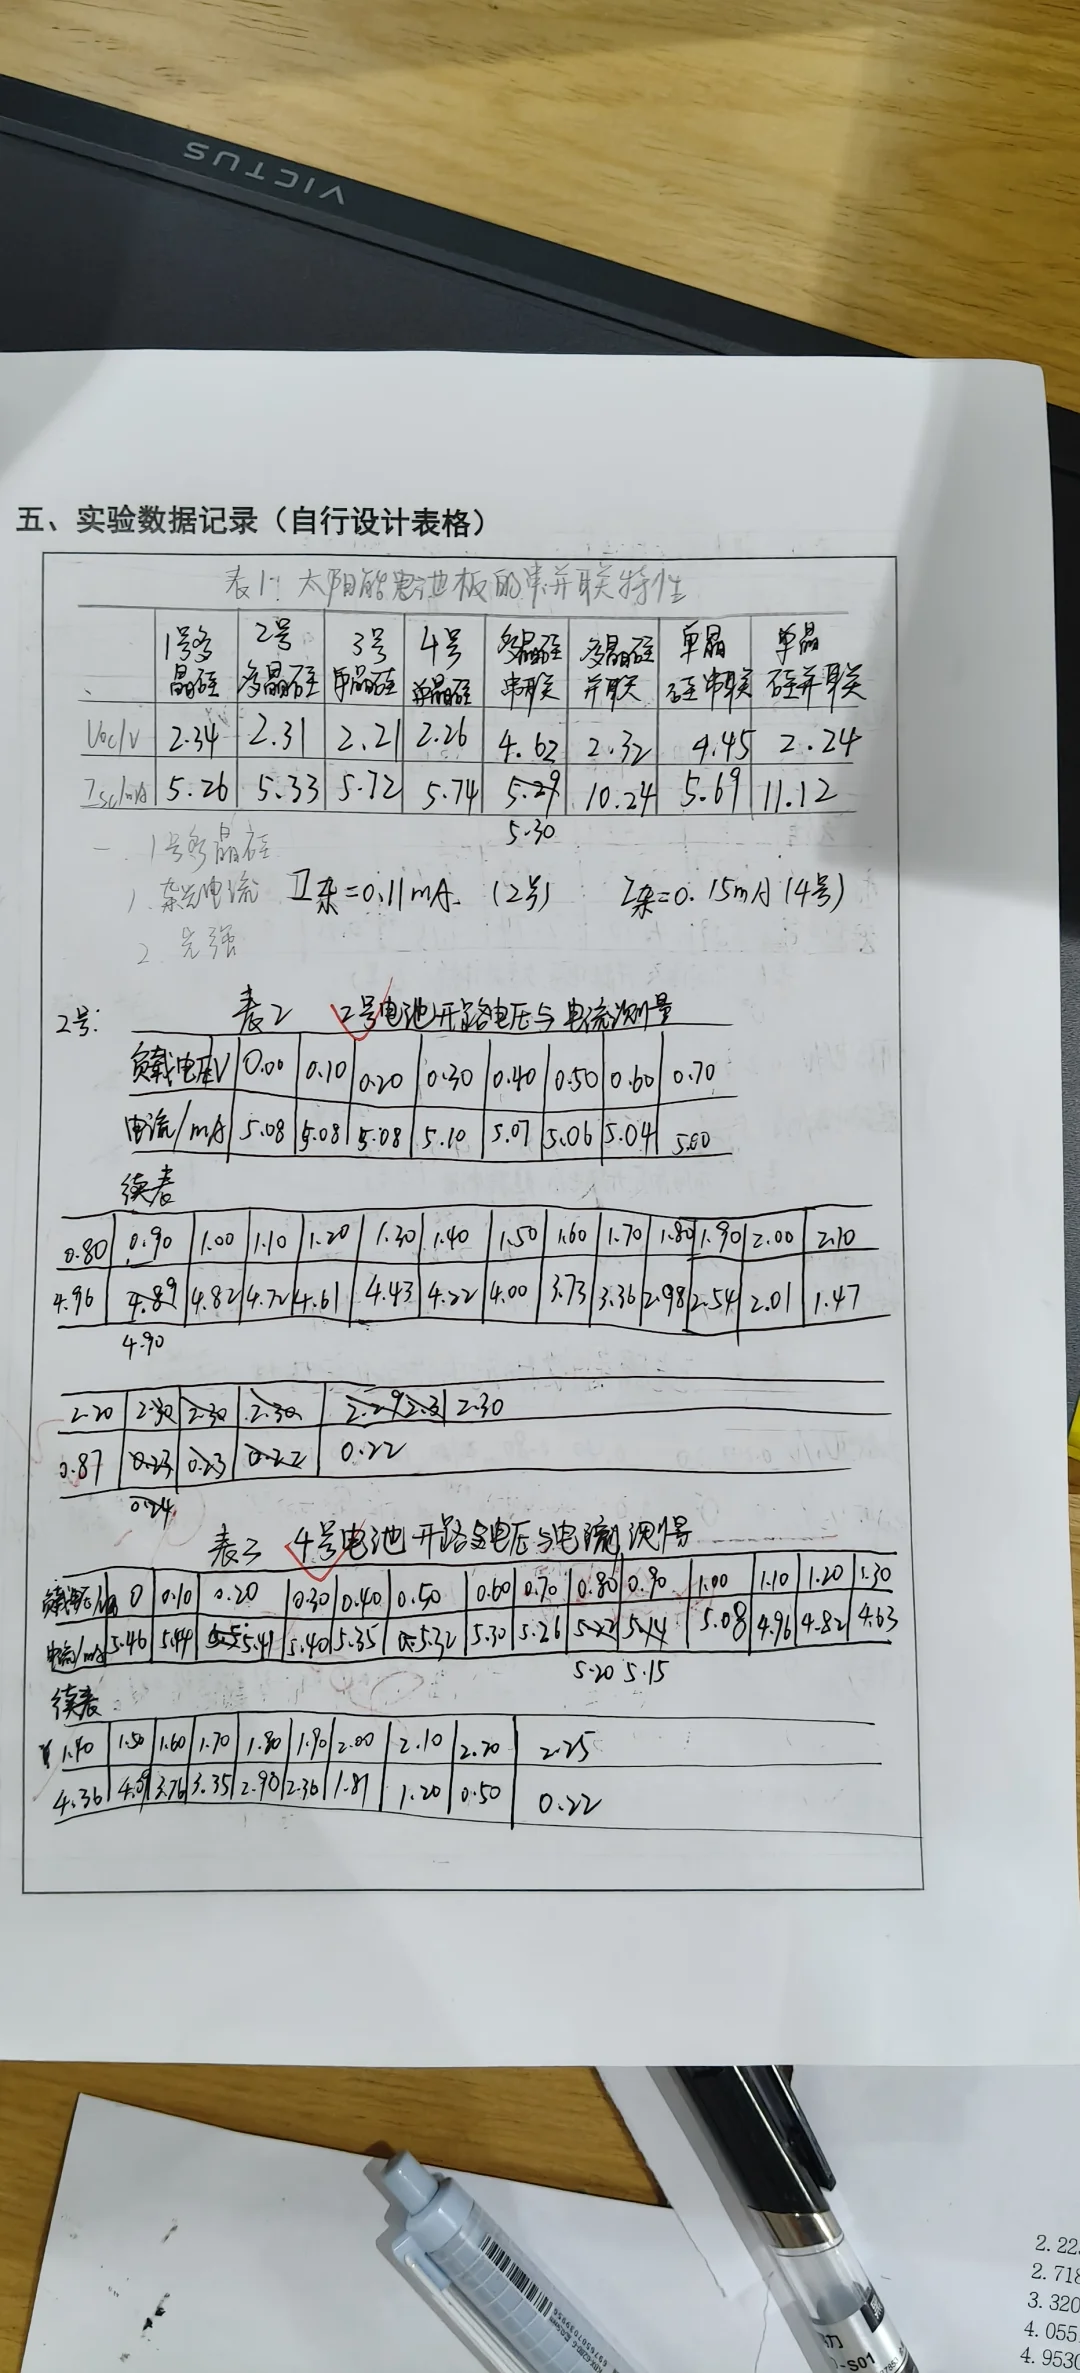 VICTUS
五、实验数据记录（自行设计表格）
表1: 太阳能电池板的串并联特性
1号多晶硅 2号多晶硅 3号单晶硅 4号单晶硅 多晶硅串联 多晶硅并联 单晶硅串联 单晶硅并联
Uoc/V 2.34 2.31 2.21 2.26 4.62 2.32 4.45 2.24
Isc/mA 5.26 5.33 5.72 5.74 5.29 10.24 5.69 11.12
5.30
一. 1号多晶硅
1. 杂光电流 I杂=0.11mA. (2号) I杂=0.15mA (4号)
2. 光强
2号: 表2 2号电池开路电压与电流测量
负载电压V 0.00 0.10 0.20 0.30 0.40 0.50 0.60 0.70
电流/mA 5.08 5.08 5.08 5.10 5.07 5.06 5.04 5.00
续表
0.80 0.90 1.00 1.10 1.20 1.30 1.40 1.50 1.60 1.70 1.80 1.90 2.00 2.10
4.96 4.89 4.82 4.72 4.61 4.43 4.22 4.00 3.73 3.36 2.98 2.54 2.01 1.47
4.90
2.20 2.30 2.30 2.30 2.29 2.31 2.30
0.87 0.23 0.23 0.22 0.22
0.24
表3 4号电池开路电压与电流测得
0 0.10 0.20 0.30 0.40 0.50 0.60 0.70 0.80 0.90 1.00 1.10 1.20 1.30
电流/mA 5.46 5.44 5.41 5.40 5.35 5.32 5.30 5.26 5.22 5.14 5.08 4.96 4.82 4.63
5.20 5.15
续表
1.40 1.50 1.60 1.70 1.80 1.90 2.00 2.10 2.20 2.25
4.36 4.09 3.76 3.35 2.90 2.36 1.81 1.20 0.50 0.22
2.22
2.718
3.320
4.055
4.9530
-S01